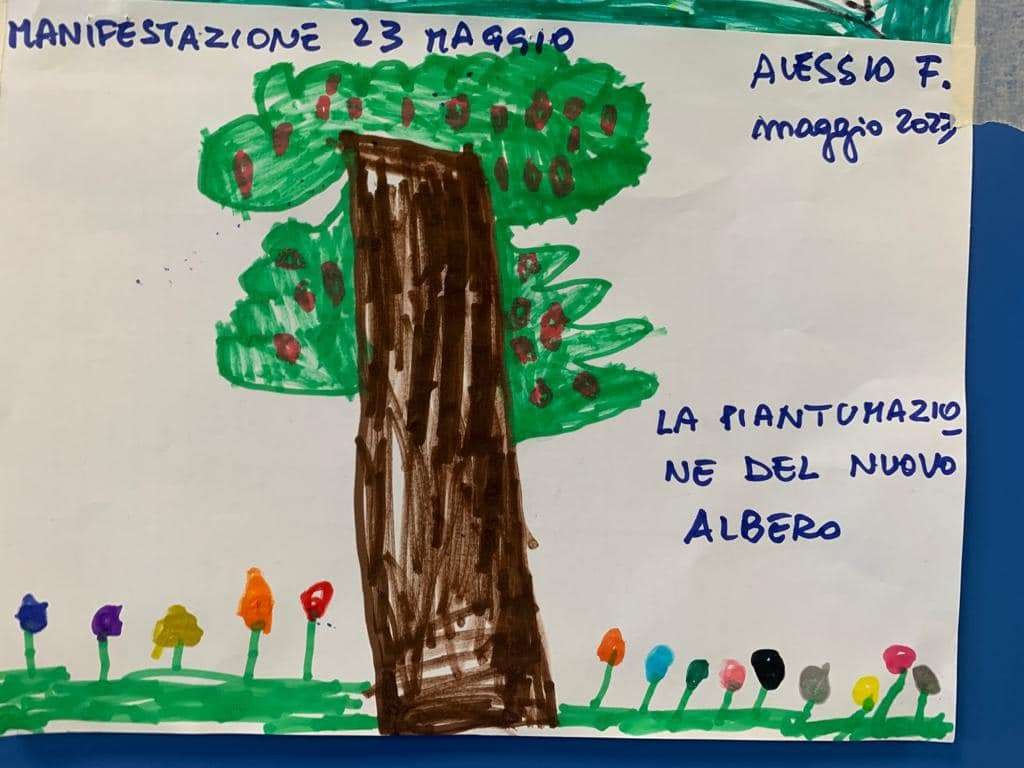 MANIFESTAZIONE 23 MAGGIO
ALESSIO F.
maggio 2023
LA PIANTUMAZIO
NE DEL NUOVO
ALBERO